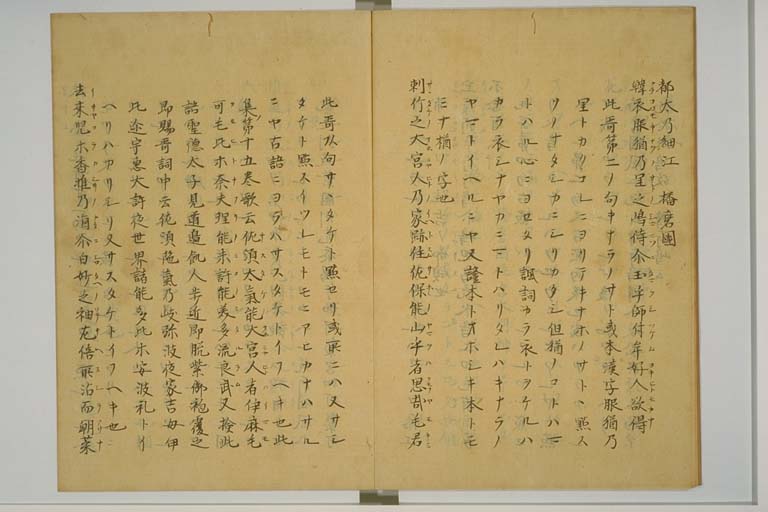 都太乃細江 播磨國
韓衣服猶乃里之嶋待尓玉乎師付牟好人欲得
此哥第二ノ句キナラノサト或本濱字服猶乃
里トカケリコレニヨリテキナホノサトハ點ス
ソノサタシカニシリカタシ但猶ノコトハニ
トハル心ニヨセタリ諷詞カラ衣トツケルハ
カラ衣シナヤカニマトハリタレハキナラノ
ヤマトイヘルニヤ又證本トオホシキ本トモ
ミナ楢ノ字也
刺竹之大宮人乃家跡住佐保能山乎者思哉毛君
此哥仙句サタケト點セリ或所ニハ又サシ
タケト點スイツレモトモニアヒカナハサル
ニヤ古語ニヨラハサスタケトイフヘキ也此
集第十五巻歌云佐須太氣能大宮人者伊麻毛
可毛比等奈夫理能未許能美多流良武又捡此
詰聖德太子見道邊飢人步近即脱紫御袍覆之
即賜哥詞中云佐須陁氣乃岐弥波夜家吉母伊
比迩宇惠天許夜世留諸能多比等安波礼トイ
ヘリハカリナリ又サスタケトイフヘキ也
去来児等香椎乃滷尓白妙之袖左倍所沾而朝菜